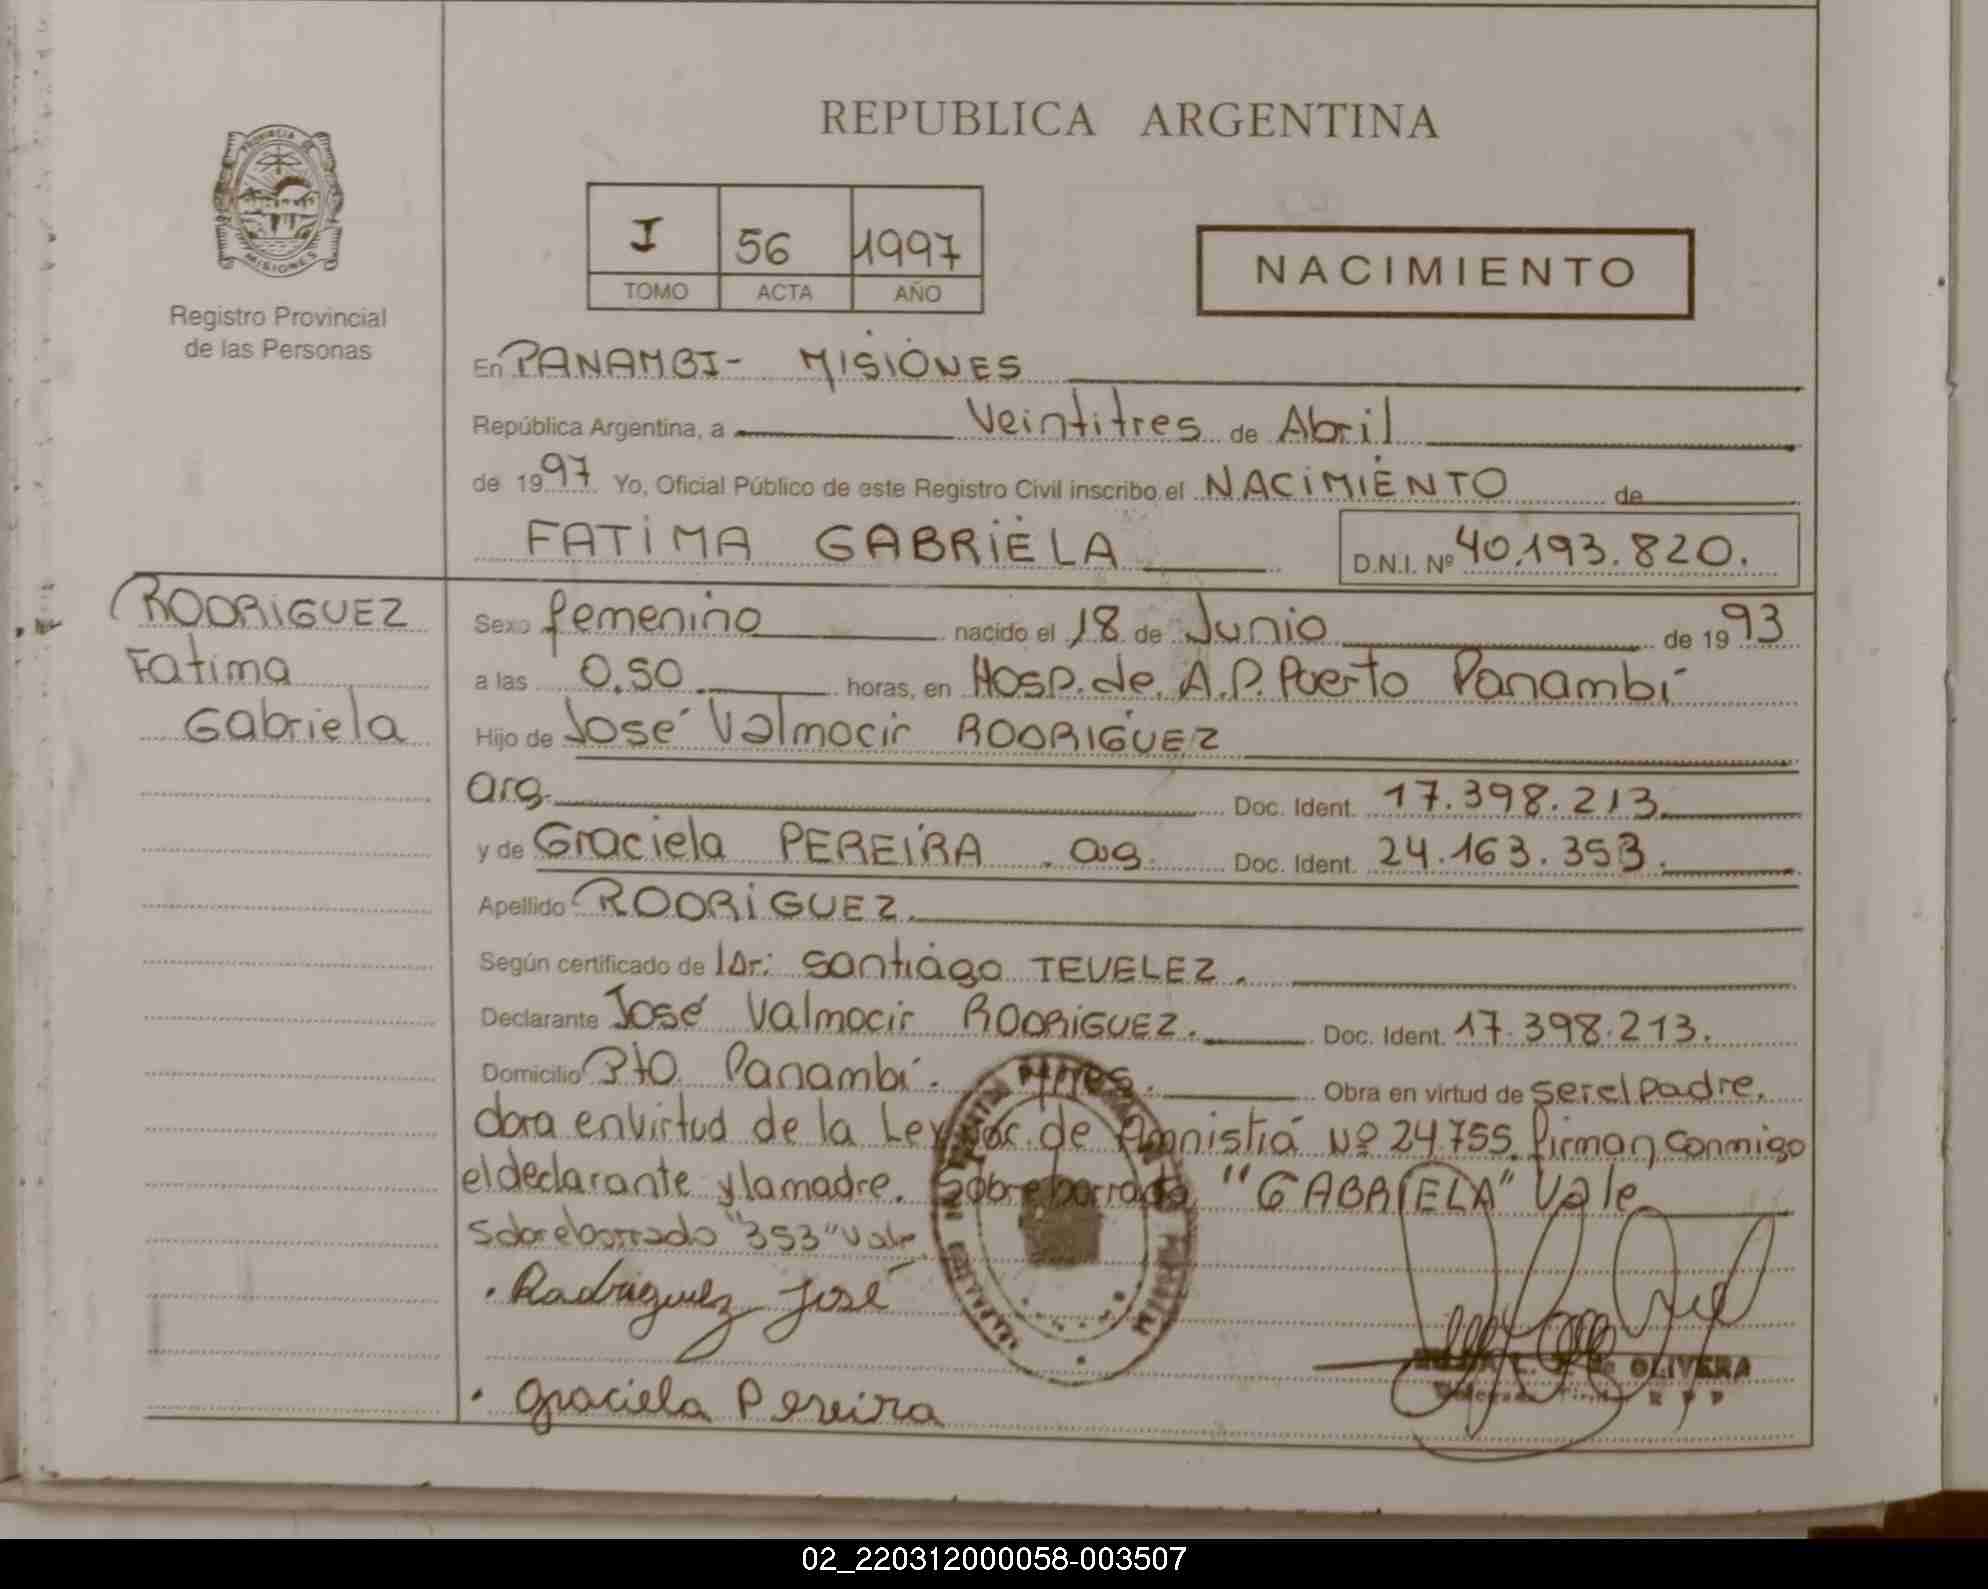 REPUBLICA ARGENTINA
PROVINCIA DE
MISIONES
Registro Provincial
de las Personas
I 56 1997
TOMO ACTA AÑO
NACIMIENTO
En PANAMBI - MISIONES
República Argentina, a Veintitres de Abril
de 1997 Yo, Oficial Público de este Registro Civil inscribo el NACIMIENTO de
FATIMA GABRIELA D.N.I. Nº 40.193.820.
RODRIGUEZ
Fatima
Gabriela
Sexo femenino nacido el 18 de Junio de 1993
a las 0.50 horas, en Hosp. de A.P. Puerto Panambí
Hijo de José Valmocir RODRIGUEZ
arg. Doc. Ident. 17.398.213.
y de Graciela PEREIRA . arg. Doc. Ident. 24.163.353.
Apellido RODRIGUEZ.
Según certificado de Dr: Santiago TEVELEZ.
Declarante José Valmocir RODRIGUEZ. Doc. Ident. 17.398.213.
Domicilio Pto Panambí. Mnes. Obra en virtud de ser el padre.
obra en virtud de la Ley Nac. de Amnistiá Nº 24.755. firman conmigo
el declarante y la madre. Sobreborrado "GABRIELA" Vale
Sobreborrado "353" Vale.
Rodriguez José
Graciela Pereira
OLIVERA
02_220312000058-003507